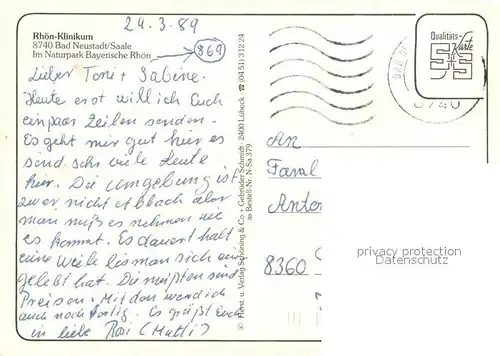 24.3.89
Rhön-Klinikum
8740 Bad Neustadt/Saale
Im Naturpark Bayerische Rhön
869
Lieber Toni + Sabine.
Heute erst will ich Euch
ein paar Zeilen senden.
Es geht mir gut hier es
send sehr viele Leute
hier. Die Umgebung ist
zwar nicht Ablach aber
man muß es nehmen wie
es kommt. Es dauert halt
eine Weile bis man sich ein
gelebt hat. Die meißten sind
Preisen. Mit den werd ich
auch noch fertig. Es grüßt Euch
in liebe Rosi (Mutti)
Foerst. u. Verlag Schöning & Co + Gebrüder Schmidt · 2400 Lübeck · ☎ (04 51) 3 12 24
as Bestell-Nr. N-Sa 379
Qualitäts-
Karte
S+S
8740
An
Fam
Anton
8360
privacy protection
Datenschutz